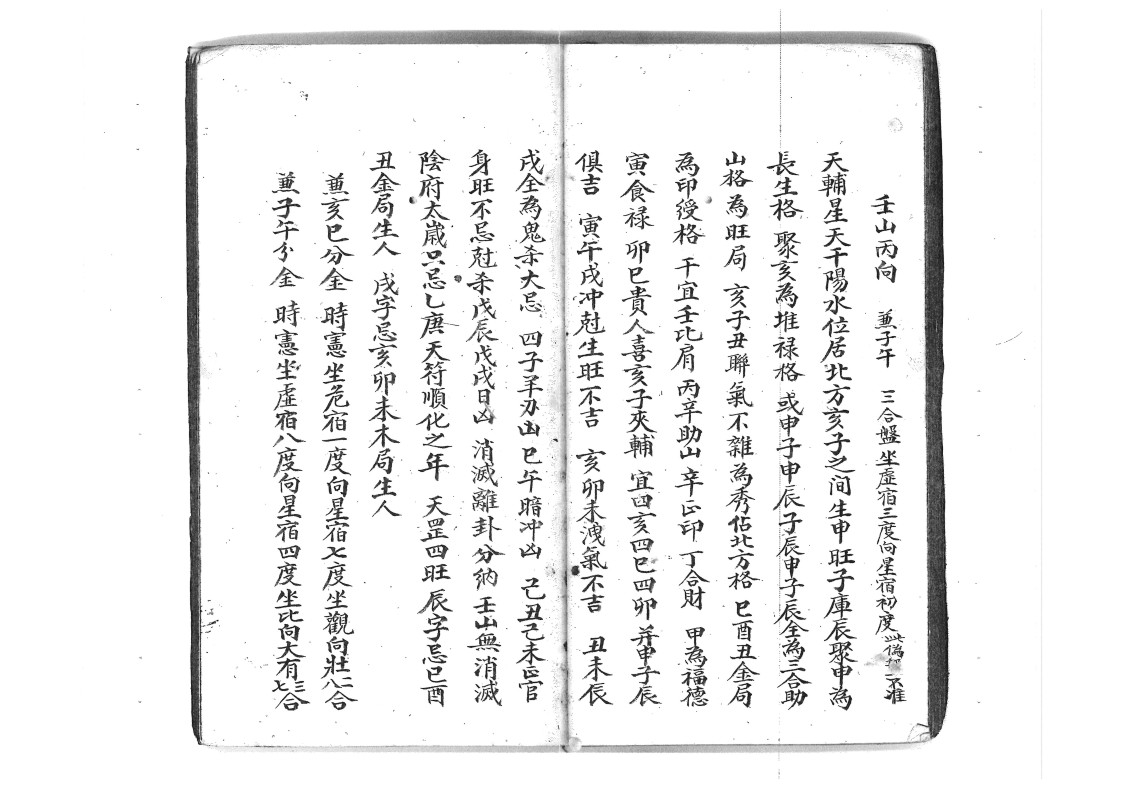 壬山丙向　兼子午　三合盤坐虛宿三度向星宿初度此偽　不准
天輔星天干陽水位居北方亥子之间生申旺子庫辰聚申為
長生格　聚亥為堆禄格　或申子申辰子辰申子辰全為三合助
山格為旺局　亥子丑聯氣不雜為秀佔北方格　巳酉丑金局
為印綬格　干宜壬比肩　丙辛助山　辛正印　丁合財　甲為福德
寅食禄　卯巳貴人喜亥子夾輔　宜四亥四巳四卯　并申子辰
俱吉　寅午戌冲尅生旺不吉　亥卯未洩氣不吉　丑未辰
戌全為鬼杀大忌　四子羊刃山　巳午暗冲凶　己丑己未正官
身旺不忌尅杀戊辰戊戌日凶　消滅離卦分納　壬山無消滅
陰府太歲只忌乚庚　天符順化之年　天罡四旺　辰字忌巳酉
丑金局生人　戌字忌亥卯未木局生人
兼亥巳分金　時憲坐危宿一度向星宿七度坐觀向壯二八合
兼子午分金　時憲坐虛宿八度向星宿四度坐比向大有三七合